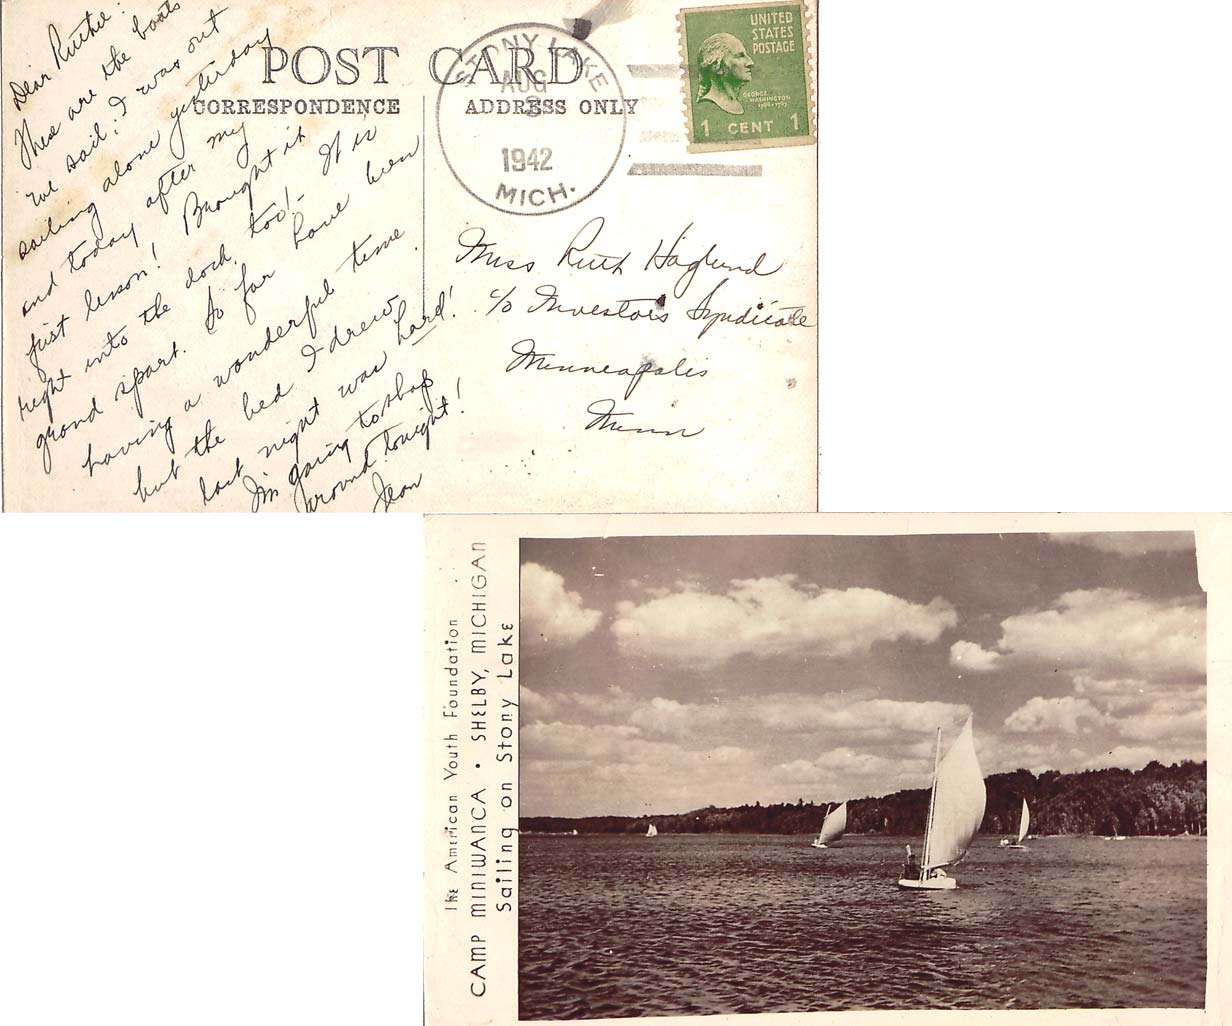 POST CARD
CORRESPONDENCE
ADDRESS ONLY
STONY LAKE
AUG
3
1942
MICH.
UNITED
STATES
POSTAGE
GEORGE
WASHINGTON
1 CENT 1
Dear Ruthie:
These are the boats
we sail; I was out
sailing alone yesterday
and today after my
first lesson! Brought it
right into the dock, too! - It is
grand sport. So far have been
having a wonderful time.
but the bed I drew
last night was hard!
I'm going to shop
around tonight!
Jean
Miss Ruth Haglund
c/o Investors Syndicate
Minneapolis
Minn
The American Youth Foundation
CAMP MINIWANCA • SHELBY, MICHIGAN
Sailing on Stony Lake